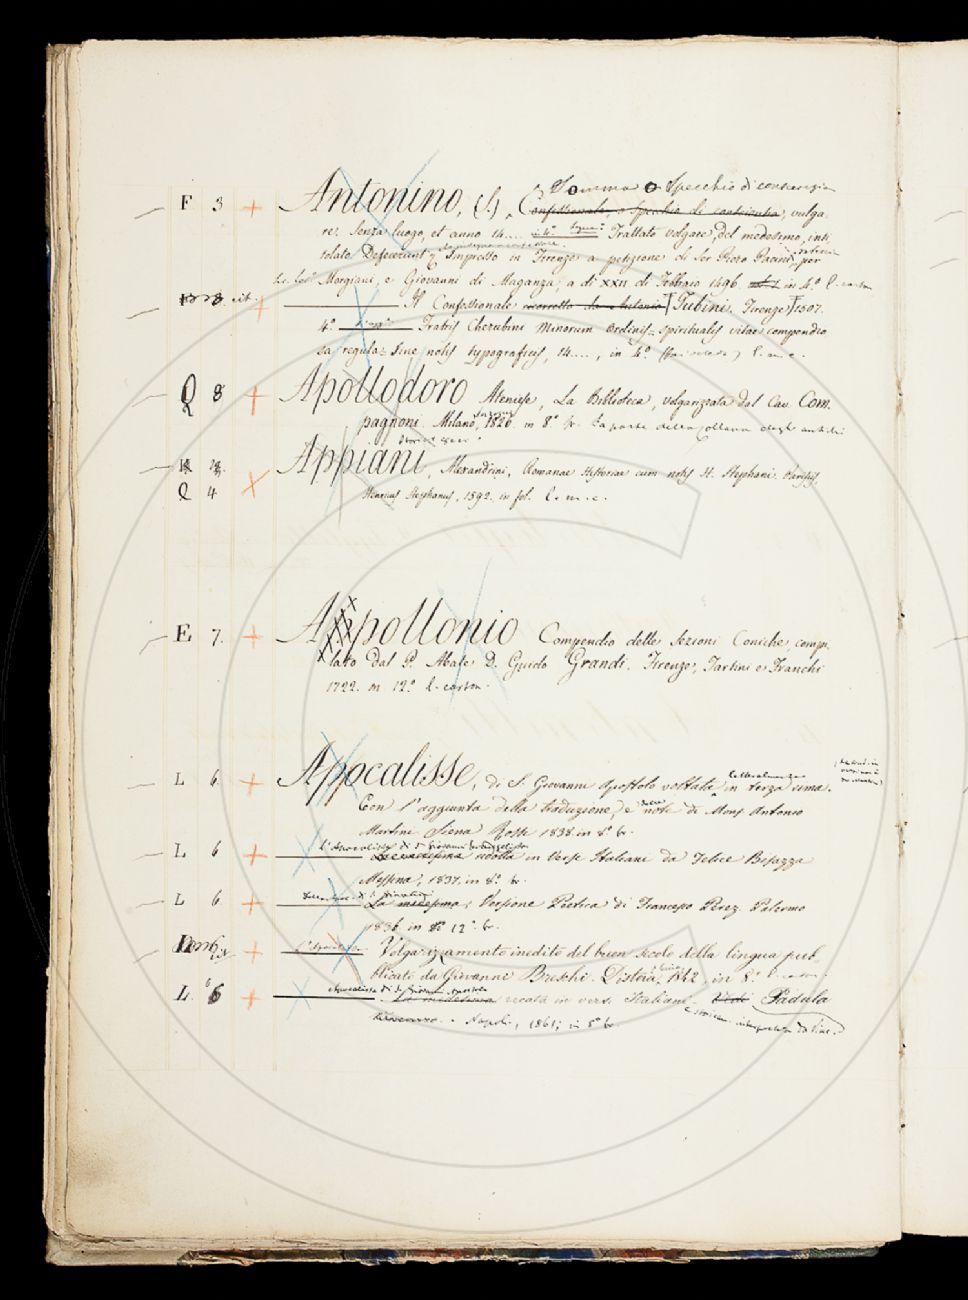 Somma o Specchio di conscienzia
F 3 Antonino, (S.) Confessionale, o Specchio di conscientia, volga-
re. Senza luogo, et anno 14.... in 4.° Trattato volgare, del medesimo, inti
tolato Defecerunt Impresso in Firenze a petizione di Ser Piero Pacini, per
Morgiani, e Giovanni di Maganza, a dì XXII di Febbraio 1496 in 4.° l. carton
Il Confessionale corretto da Antonio Tubini, Firenze 1507.
4.° Fratris Cherubini Minorum Ordinis spiritualis vitae compendio
sa regula: sine notis typograficis, 14...., in 4.° l. m. c.
Q 8 Apollodoro Ateniese, La Biblioteca, volgarizzata dal Cav. Com-
pagnoni. Milano, Sonzogno 1826. in 8.° br. Fa parte della Collana degli antichi
Storici Greci.
Appiani, Alexandrini, Romanae Historiae cum notis H. Stephani. Parisiis,
Q 4 Henricus Stephanus, 1592. in fol. l. m. c.
E 7. Appollonio Compendio delle Sezioni Coniche, compi-
lato dal P. Abate D. Guido Grandi. Firenze, Tartini e Franchi
1722. in 12.° l. carton.
L 6 Apocalisse, di S. Giovanni Apostolo voltata letteralmente in terza rima.
Con l'aggiunta della traduzione, e delle note di Mons Antonio
Martini Siena Rossi 1838 in 8.° br.
L 6 L'Apocalisse di S. Giovanni Evangelista
ridotta in Verse Italiani da Felice Bisazza
Messina, 1837, in 8.° br.
L 6 La medesima; Versione Poetica di Francesco Perez. Palermo
1836 in 12.° br.
L'Apocalisse Volgarizzamento inedito del buon secolo della lingua pub-
blicato da Giovanni Breschi. Pistoia, 1842, in 8.° l. carton.
L. 6 Apocalisse di S. Giovanni Apostolo
La medesima recata in versi Italiani Vedi Padula
Vincenzo. Napoli, 1861; in 8.° br. e storicam. interpretata da Vinc.